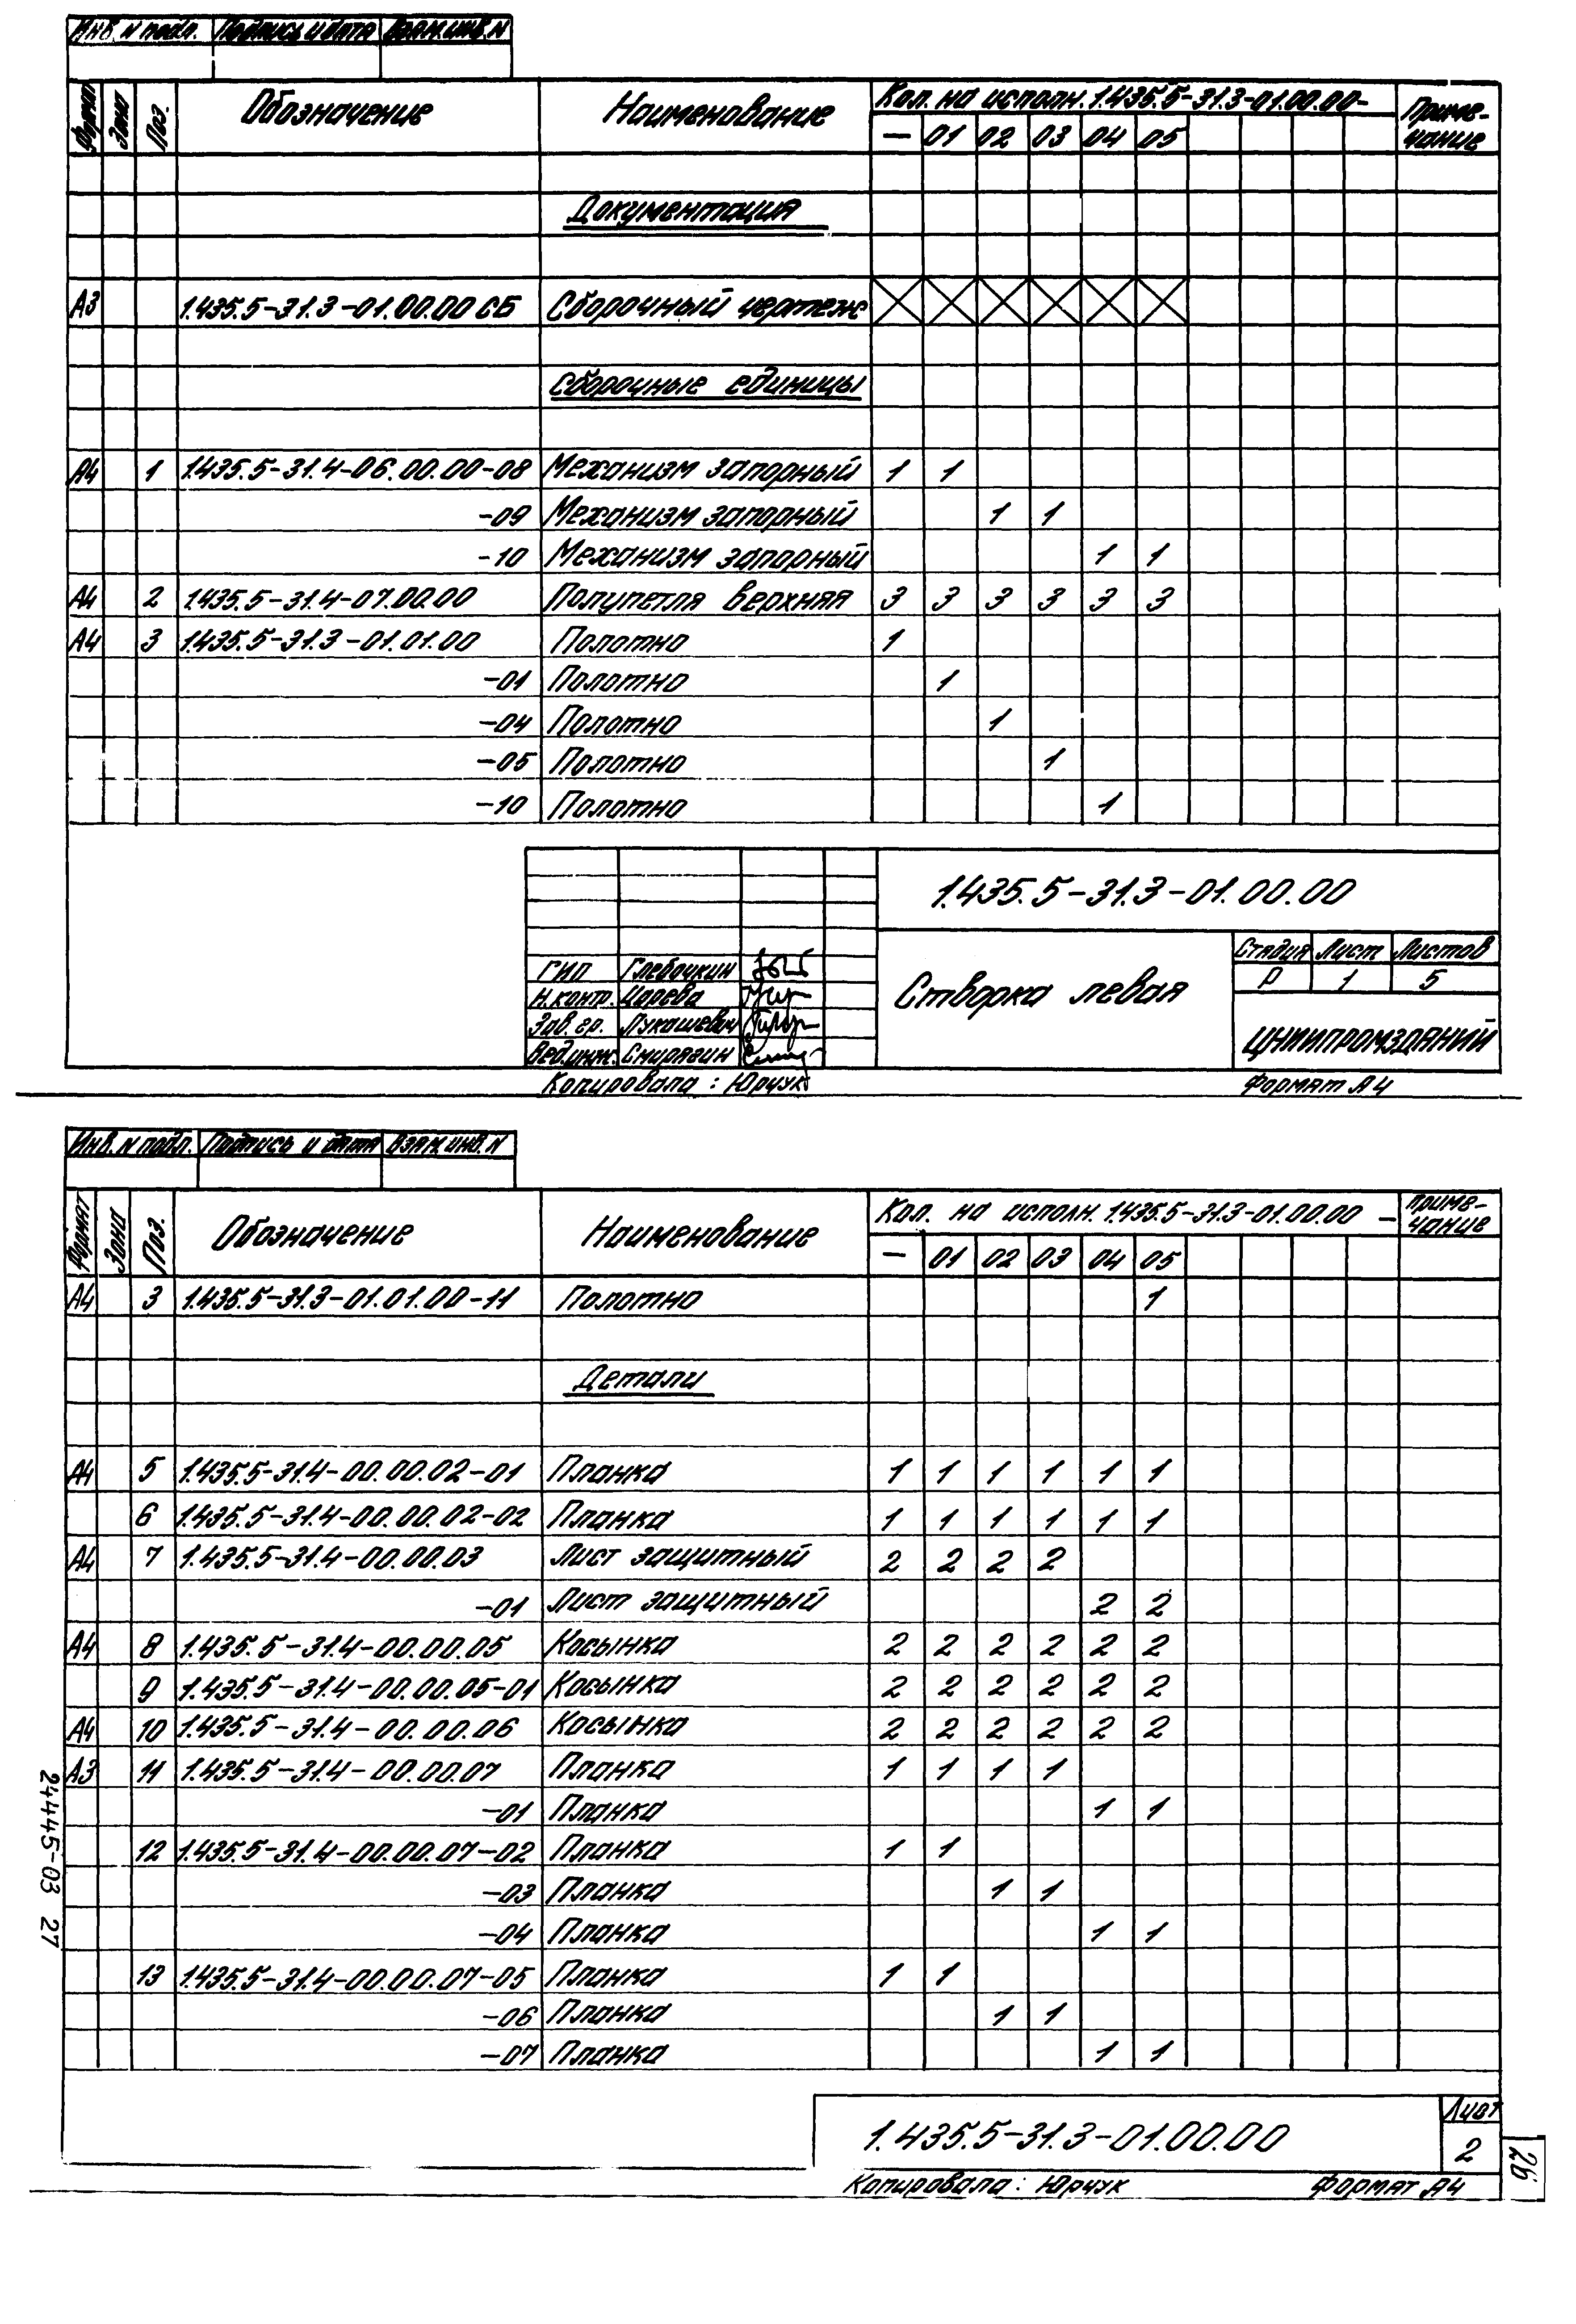 Инв. N подл. Подпись и дата Взам. инв. N
Формат Зона Поз. Обозначение Наименование Кол. на исполн. 1.435.5-31.3-01.00.00- Приме-
чание
— 01 02 03 04 05
Документация
А3 1.435.5-31.3-01.00.00 СБ Сборочный чертеж
Сборочные единицы
А4 1 1.435.5-31.4-06.00.00-08 Механизм запорный 1 1
-09 Механизм запорный 1 1
-10 Механизм запорный 1 1
А4 2 1.435.5-31.4-07.00.00 Полупетля верхняя 3 3 3 3 3 3
А4 3 1.435.5-31.3-01.01.00 Полотно 1
-01 Полотно 1
-04 Полотно 1
-05 Полотно 1
-10 Полотно 1
1.435.5-31.3-01.00.00
ГИП Глебочкин
Н.контр. Царева
Зав. гр. Лукашевич
Вед.инж. Смирягин
Створка левая
Стадия Лист Листов
Р 1 5
ЦНИИПРОМЗДАНИЙ
Копировала: Юрчук Формат А4
Инв. N подл. Подпись и дата Взам. инв. N
Формат Зона Поз. Обозначение Наименование Кол. на исполн. 1.435.5-31.3-01.00.00 — Приме-
чание
— 01 02 03 04 05
А4 3 1.435.5-31.3-01.01.00-11 Полотно 1
Детали
А4 5 1.435.5-31.4-00.00.02-01 Планка 1 1 1 1 1 1
6 1.435.5-31.4-00.00.02-02 Планка 1 1 1 1 1 1
А4 7 1.435.5-31.4-00.00.03 Лист защитный 2 2 2 2
-01 Лист защитный 2 2
А4 8 1.435.5-31.4-00.00.05 Косынка 2 2 2 2 2 2
9 1.435.5-31.4-00.00.05-01 Косынка 2 2 2 2 2 2
А4 10 1.435.5-31.4-00.00.06 Косынка 2 2 2 2 2 2
А3 11 1.435.5-31.4-00.00.07 Планка 1 1 1 1
-01 Планка 1 1
12 1.435.5-31.4-00.00.07-02 Планка 1 1
-03 Планка 1 1
-04 Планка 1 1
13 1.435.5-31.4-00.00.07-05 Планка 1 1
-06 Планка 1 1
-07 Планка 1 1
24445-03 27
1.435.5-31.3-01.00.00
Лист
2
26
Копировала: Юрчук Формат А4